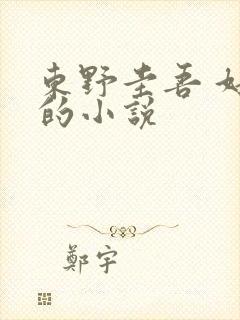 東野圭吾
的小說
鄭宇